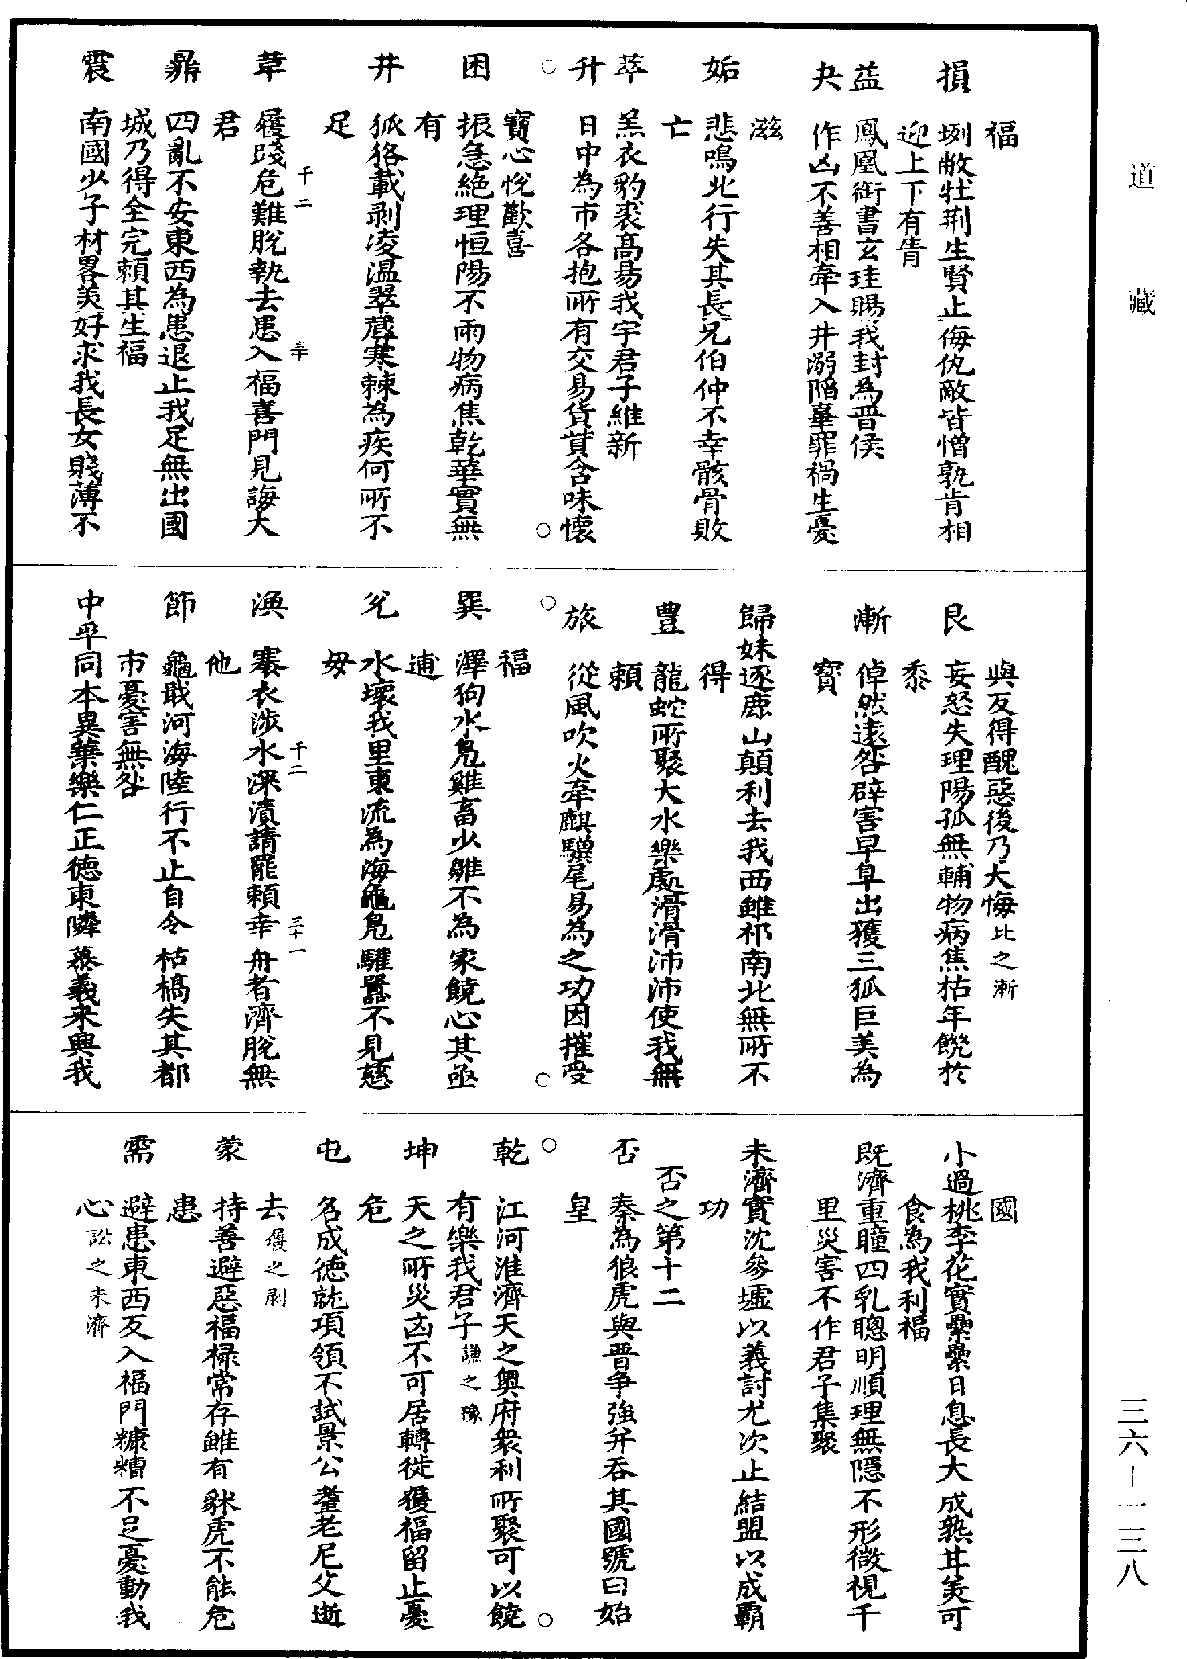 道藏
福
損　坱敝牡荆生賢止侮仇敵皆憎孰肯相
迎上下有眚
益　鳳凰銜書玄珪賜我封為晋侯
夬　作凶不善相牽入井溺陷辜罪禍生憂
滋
姤　悲鳴北行失其長兄伯仲不幸骸骨敗
亡
萃　羔衣豹裘高易我宇君子維新
升　日中為市各抱所有交易貨貰含味懷
寶心悅歡喜
困　振急絕理恒陽不雨物病焦乾華實無
有
井　狐狢載剥淩溫翠蔵寒棘為疾何所不
足
革　履踐危難脫執去患入福喜門見誨大
君
千二
羊
鼎　四亂不安東西為患退止我足無出國
城乃得全完賴其生福
震　南國少子材畧美好求我長女賤薄不
與反得醜惡後乃大悔比之漸
艮　妄怒失理陽孤無輔物病焦枯年饑於
黍
漸　倬然遠咎辟害早阜出獲三狐巨美為
寶
歸妹逐鹿山顛利去我西雖祁南北無所不
得
豐　龍蛇所聚大水樂處滑滑沛沛使我無
賴
旅　從風吹火牽麒驥尾易為之功因摧受
福
巽　澤狗水鳧雞畜少雛不為家饒心其亟
逋
兌　水壞我里東流為海龜鳧驩嚚不見慈
母
渙　褰衣涉水深漬請罷賴幸舟者濟脫無
他
千二
三十一
節　龜厭河海陸行不止自令枯槁失其都
市憂害無咎
中孚同本異葉樂仁正德東隣慕義來興我
國
小過桃李花實纍纍日息長大成熟甘美可
食為我利福
既濟重瞳四乳聰明順理無隱不形微視千
里災害不作君子集聚
未濟實沈參墟以義討尤次止結盟以成霸
功
否之第十二
否　秦為狼虎與晋爭強幷吞其國號曰始
皇
乾　江河淮濟天之奥府衆利所聚可以饒
有樂我君子謙之豫
坤　天之所災凶不可居轉徙獲福留止憂
危
屯　名成德就項領不試景公耋老尼父逝
去履之剛
蒙　持善避惡福祿常存雖有豺虎不能危
患
需　避患東西反入福門糠糟不足憂動我
心訟之未濟
三六—一三八